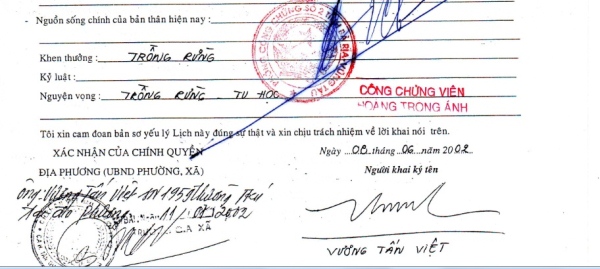 - Nguồn sống chính của bản thân hiện nay :
Khen thưởng : TRỒNG RỪNG
Kỷ luật :
Nguyện vọng : TRỒNG RỪNG - TU HỌC
PHÒNG CÔNG CHỨNG SỐ 2 TỈNH BÀ RỊA-VŨNG TÀU
CÔNG CHỨNG VIÊN
HOÀNG TRỌNG ÁNH
Tôi xin cam đoan bản sơ yếu lý Lịch này đúng sự thật và xin chịu trách nhiệm về lời khai nói trên.
XÁC NHẬN CỦA CHÍNH QUYỀN
ĐỊA PHƯƠNG (UBND PHƯỜNG, XÃ)
Ngày ...08 tháng ..06.. năm 2002
Người khai ký tên
Ông: Vương Tấn Việt SN 1959 thường trú
tại địa phương. 11/ 2002
C.A XÃ
VƯƠNG TẤN VIỆT